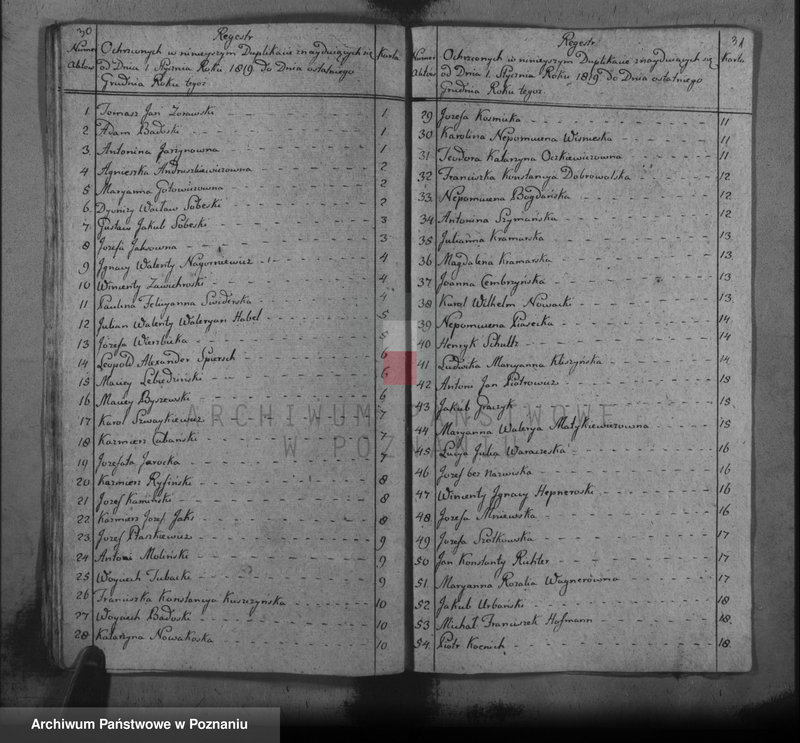 30
Regestr
Numer Aktow
Ochrzonych w ninieyszym Duplikacie znayduiących się
od Dnia 1. Stycznia Roku 1819. do Dnia ostatniego
Grudnia Roku tegoż
Karta
1 Tomasz Jan Zorawski 1
2 Adam Badoski 1
3 Antonina Jarzynowna 1
4 Agnieszka Andruszkiewiczowna 2
5 Maryanna 2
6. Dyonizy Wacław Sobeski 2
7 Gustaw Jakub Sobeski 3
8 Jozefa Jaksowna 3
9 Jgnacy Walenty Nagorniewicz 4
10 Wincenty Zawichroski 4
11 Paulina Felicyanna Swiderska 4
12 Julian Walenty Waleryan Habel 5
13 Józefa Wierzbicka 5
14 Leopold Alexander Spiersch 6
15 Maciey Lebiedziński 6
16 Maciey Byszewski 6
17 Karol Szwaykiewicz 7
18 Kazmierz Cubanski 7
19 Jozefata Jarocka 7
20 Kazmierz Ryfiński 8
21 Jozef Kamiński 8
22 Kazmierz Jozef Jaks 8
23. Jozef Ptaszkiewicz 9
24 Antoni Moliński 9
25 Woyciech Tubacki 9
26 Franciszka Konstancya Kuszczyńska 10
27 Woyciech Badoski 10
28 Katarzyna Nowakoska 10
31
Regestr
Numer Aktow
Ochrzonych w ninieyszym Duplikacie znayduiących się
od Dnia 1. Stycznia Roku 1819 do Dnia ostatniego
Grudnia Roku tegoż
Karta
29 Jozefa Kosmicka 11
30 Karolina Nepomucena Wisnieska 11
31 Teodora Katarzyna Oczkiewiczowna 11
32 Franciszka Konstancya Dobrowolska 12
33. Nepomucena Bogdańska 12
34 Antonina Szymańska 12
35 Julianna Kramarska 13
36 Magdalena Kramarska 13
37 Joanna Cembrzyńska 13
38 Karol Wilhelm Nowacki 13
39 Nepomucena Piasecka 14
40 Henryk Schultz 14
41 Ludwika Maryanna Kliszyńska 14
42 Antoni Jan Piotrowicz 15
43 Jakub Graczyk 15
44 Maryanna Walerya Matykiewiczowna 15
45 Lucya Julia Waraczeska 16
46 Jozef bez nazwiska 16
47 Wincenty Jgnacy Hepneroski 16
48 Jozefa Mniewska 16
49 Jozefa Szotkowska 17
50 Jan Konstanty Richter 17
51. Maryanna Rozalia Wagnerówna 17
52 Jakub Urbański 18
53 Michał Franciszek Hofmann 18
54. Piotr Kocnich 18
ARCHIWUM PAŃSTWOWE
W POZNANIU
Archiwum Państwowe w Poznaniu